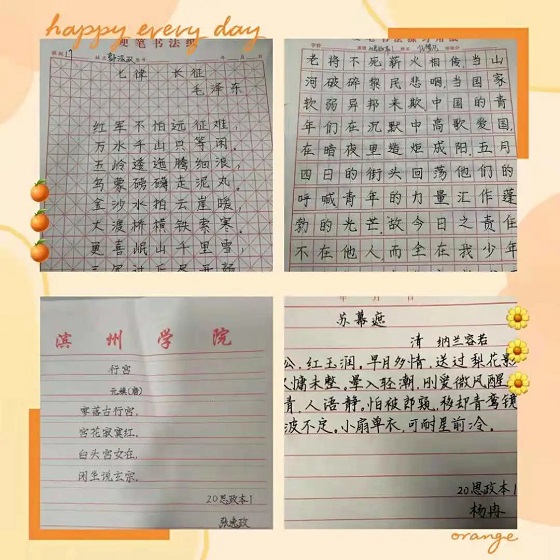 happy every day
硬笔书法纸
七律 长征
毛泽东
红军不怕远征难，
万水千山只等闲。
五岭逶迤腾细浪，
乌蒙磅礴走泥丸。
金沙水拍云崖暖，
大渡桥横铁索寒。
更喜岷山千里雪，
老将不死薪火相传当山
河破碎黎民悲咽当国家
软弱异邦来欺中国的青
年们在沉默中高歌爱国，
在暗夜里造炬成阳，五月
四日的街头回荡他们的
呼喊青年的力量汇作蓬
勃的光芒故今日之责任
不在他人而全在我少年
滨州学院
行宫
元稹(唐)
零落古行宫，
宫花寂寞红。
白头宫女在，
闲坐说玄宗。
20思政本1
苏幕遮
清 纳兰容若
红玉润，早月多情，送过梨花影
慵未整，晕入轻潮，刚爱微风醒
人语静，怕被郎窥，移却青鸾镜
波不定，小扇单衣，可耐星前冷。
20思政本1
杨冉
orange